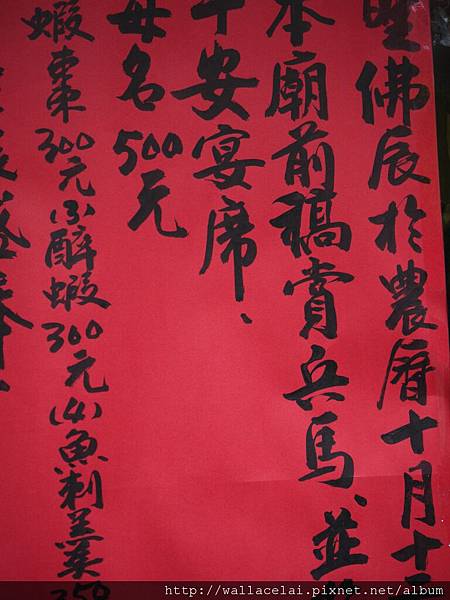 聖佛辰於農曆十月十
本廟前稿賞兵馬、並
平安宴席、
每名500元
蝦棗300元(3)醉蝦300元(4)魚刺羹350
http://wallacelai.pixnet.net/album